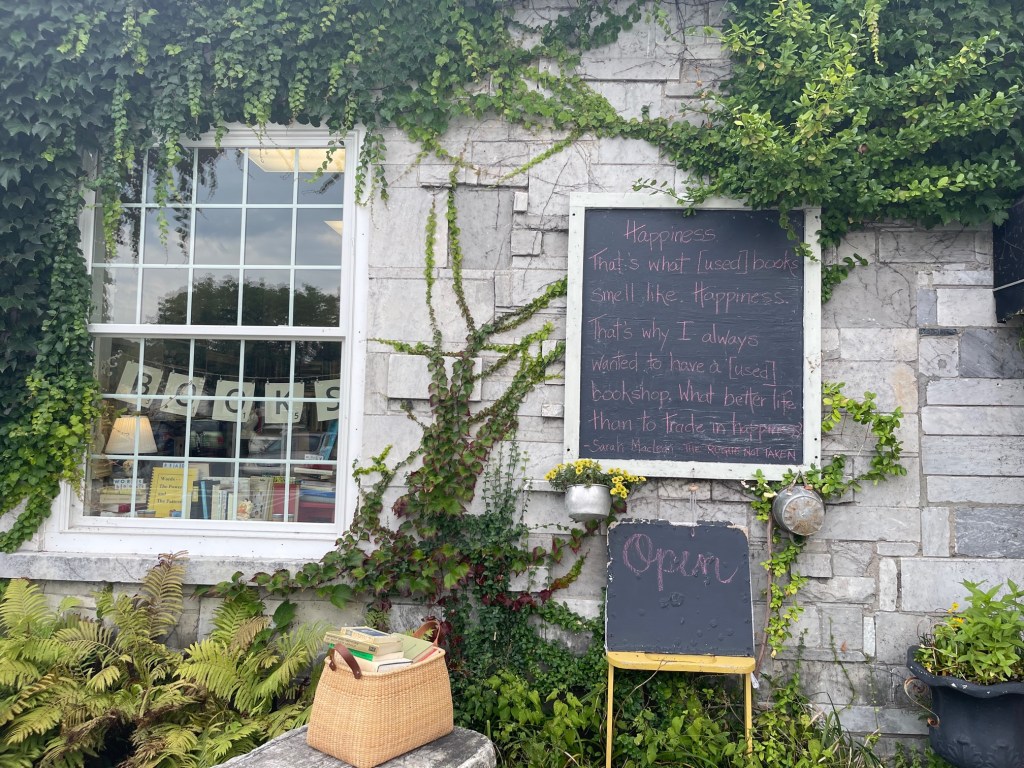 BOOKS
Happiness.
That's what [used] books
smell like. Happiness.
That's why I always
wanted to have a [used]
bookshop. What better life
than to trade in happiness?
- Sarah MacLean - THE ROGUE NOT TAKEN
Open